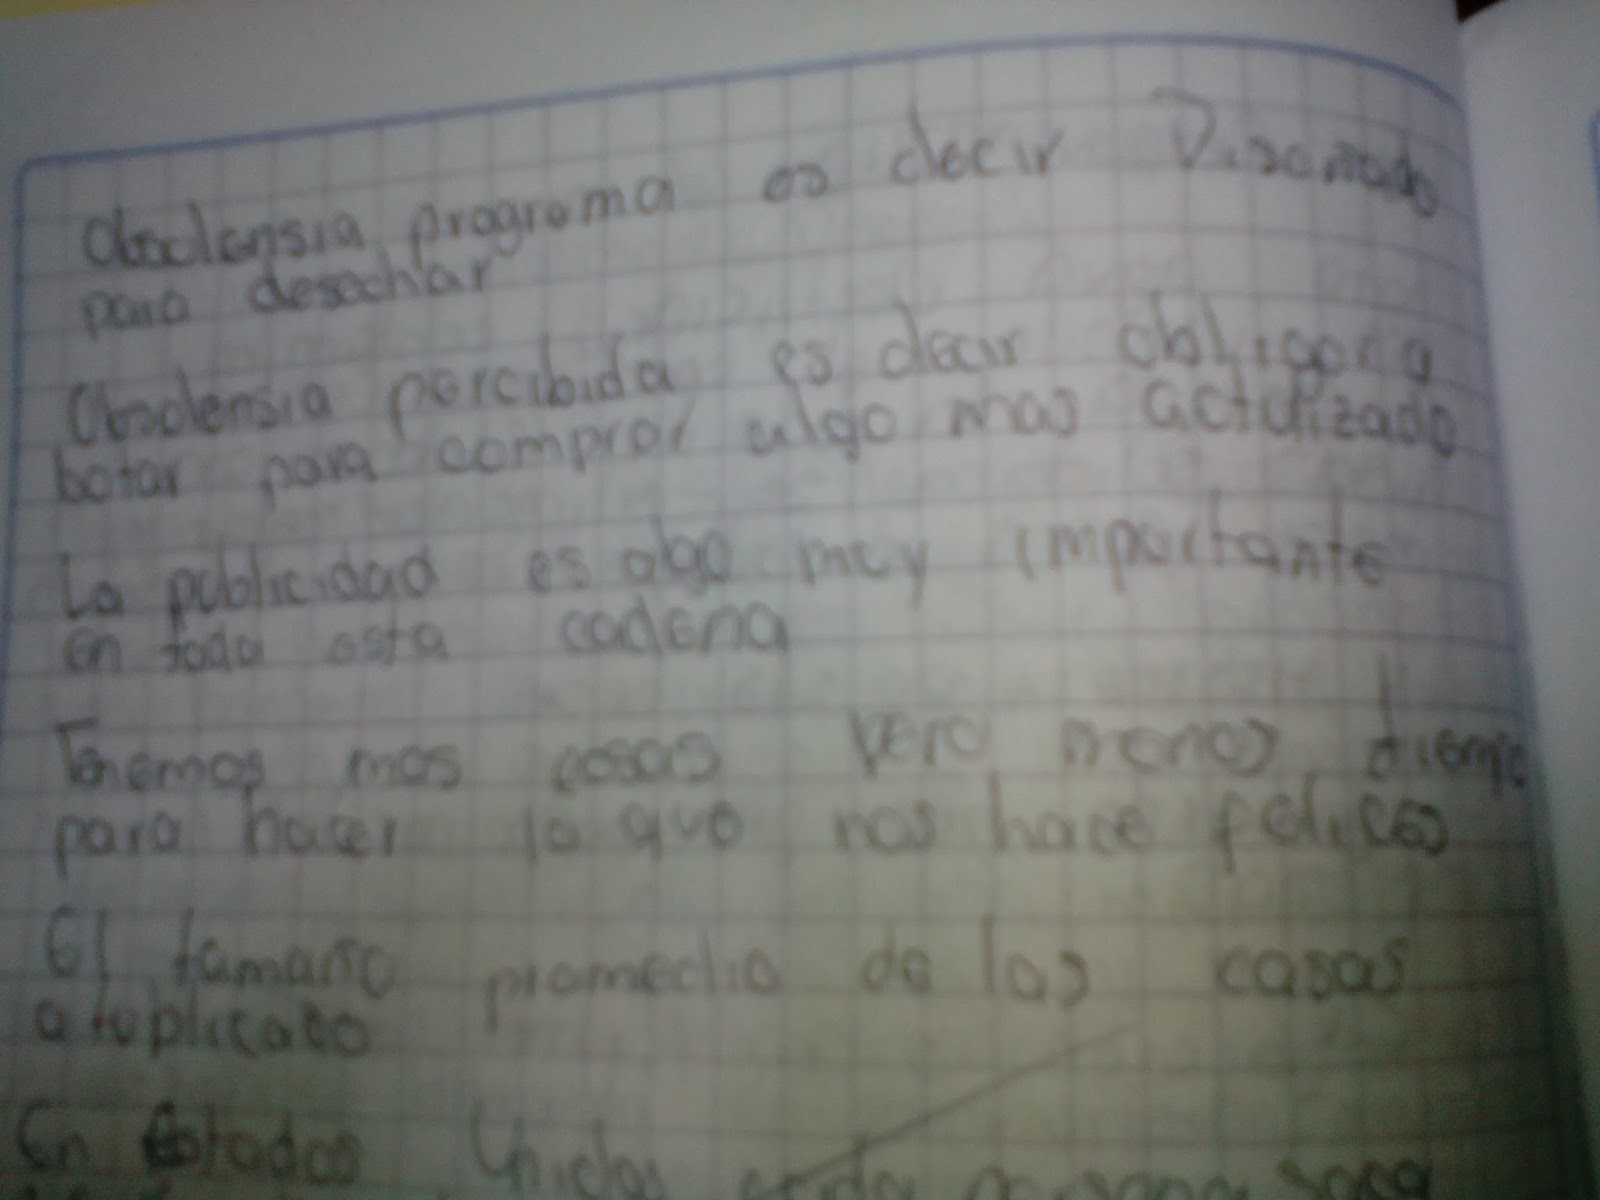 Obsolensia programa es decir Diseñado
para desechar
Obsolensia percibida es decir obligar a
botar para comprar algo mas actulizado
La publicidad es algo muy importante
en toda esta cadena
Tenemos mas cosas pero menos tiempo
para hacer lo que nos hace felices
El tamaño promedio de las casas
En Estados Unidos cada persona